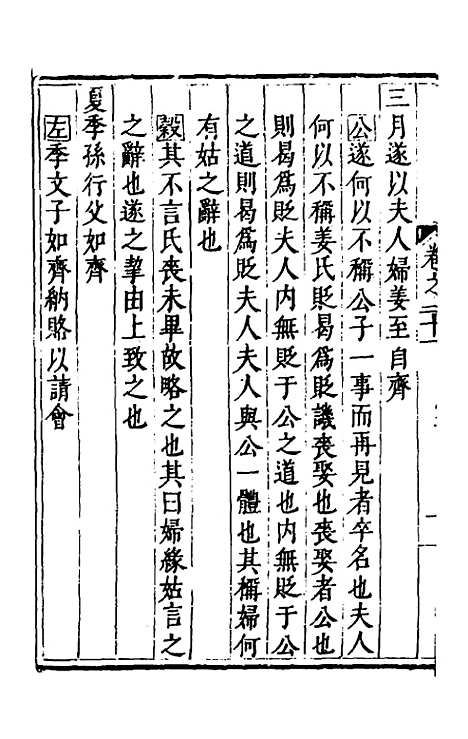 卷之二十一
三月遂以夫人婦姜至自齊
公遂何以不稱公子一事而再見者卒名也夫人
何以不稱姜氏貶曷爲貶譏喪娶也喪娶者公也
則曷爲貶夫人内無貶于公之道也内無貶于公
之道則曷爲貶夫人夫人與公一體也其稱婦何
有姑之辭也
穀其不言氏喪未畢故略之也其曰婦緣姑言之
之辭也遂之挈由上致之也
夏季孫行父如齊
左季文子如齊納賂以請會